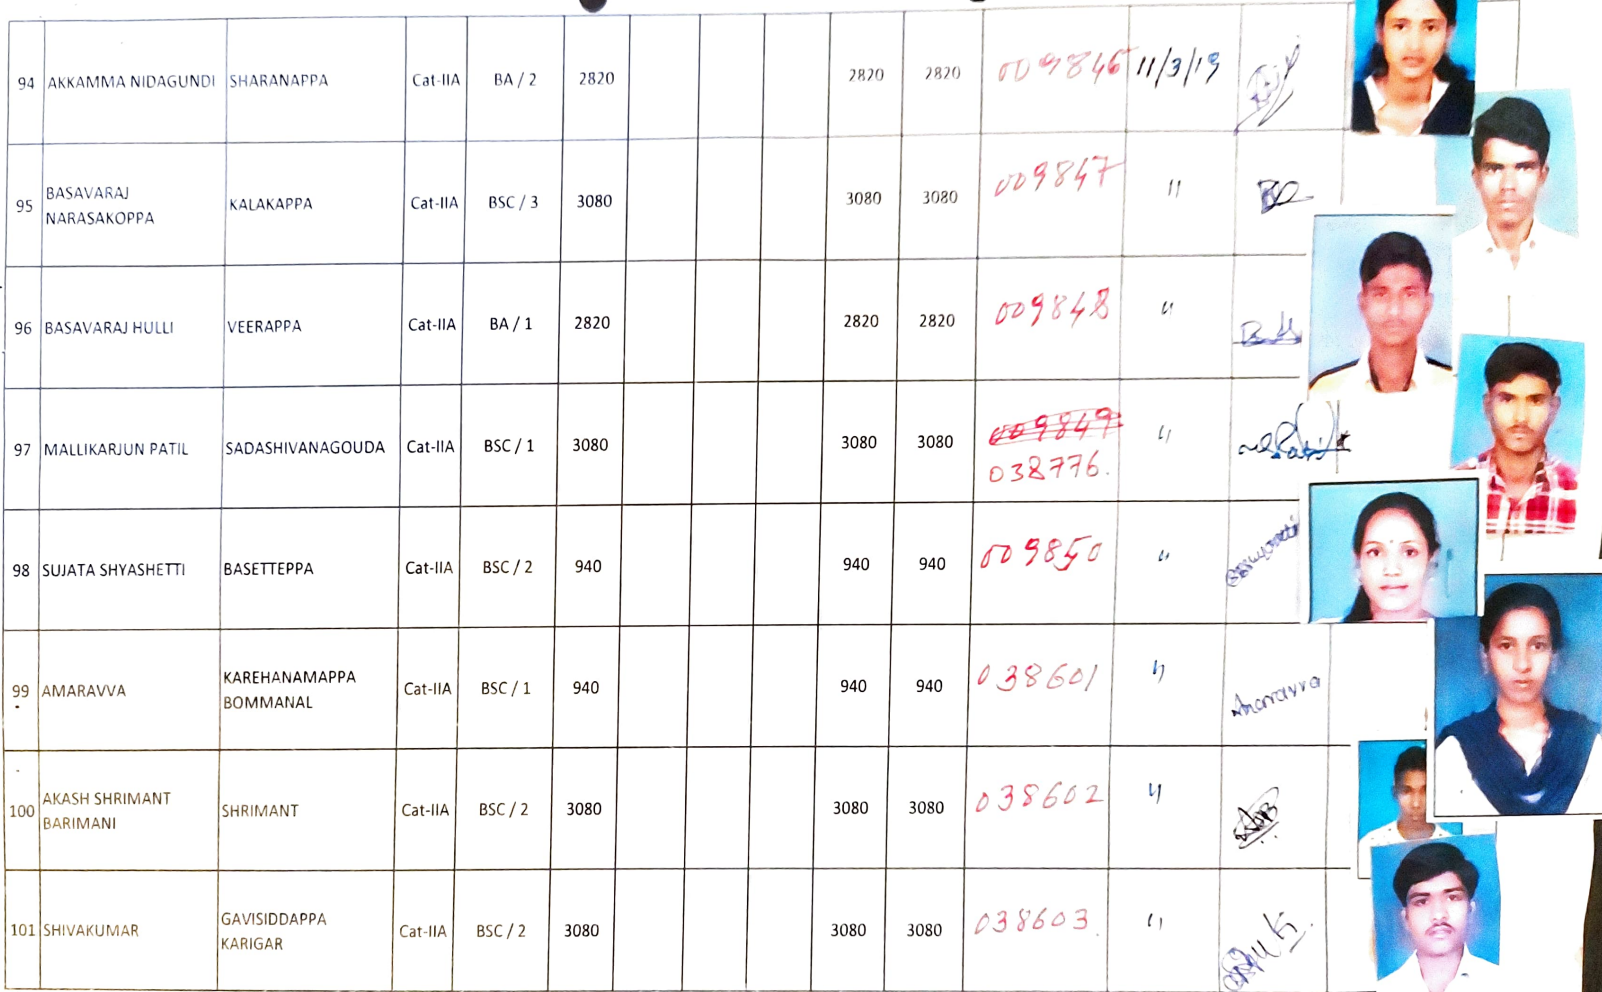 94 AKKAMMA NIDAGUNDI SHARANAPPA Cat-IIA BA / 2 2820 2820 2820 009846 11/3/19
95 BASAVARAJ NARASAKOPPA KALAKAPPA Cat-IIA BSC / 3 3080 3080 3080 009847 "
96 BASAVARAJ HULLI VEERAPPA Cat-IIA BA / 1 2820 2820 2820 009848 "
97 MALLIKARJUN PATIL SADASHIVANAGOUDA Cat-IIA BSC / 1 3080 3080 3080 009849 "
038776.
98 SUJATA SHYASHETTI BASETTEPPA Cat-IIA BSC / 2 940 940 940 009850 "
99 AMARAVVA KAREHANAMAPPA BOMMANAL Cat-IIA BSC / 1 940 940 940 038601 " Amaravva
100 AKASH SHRIMANT BARIMANI SHRIMANT Cat-IIA BSC / 2 3080 3080 3080 038602 "
101 SHIVAKUMAR GAVISIDDAPPA KARIGAR Cat-IIA BSC / 2 3080 3080 3080 038603. "